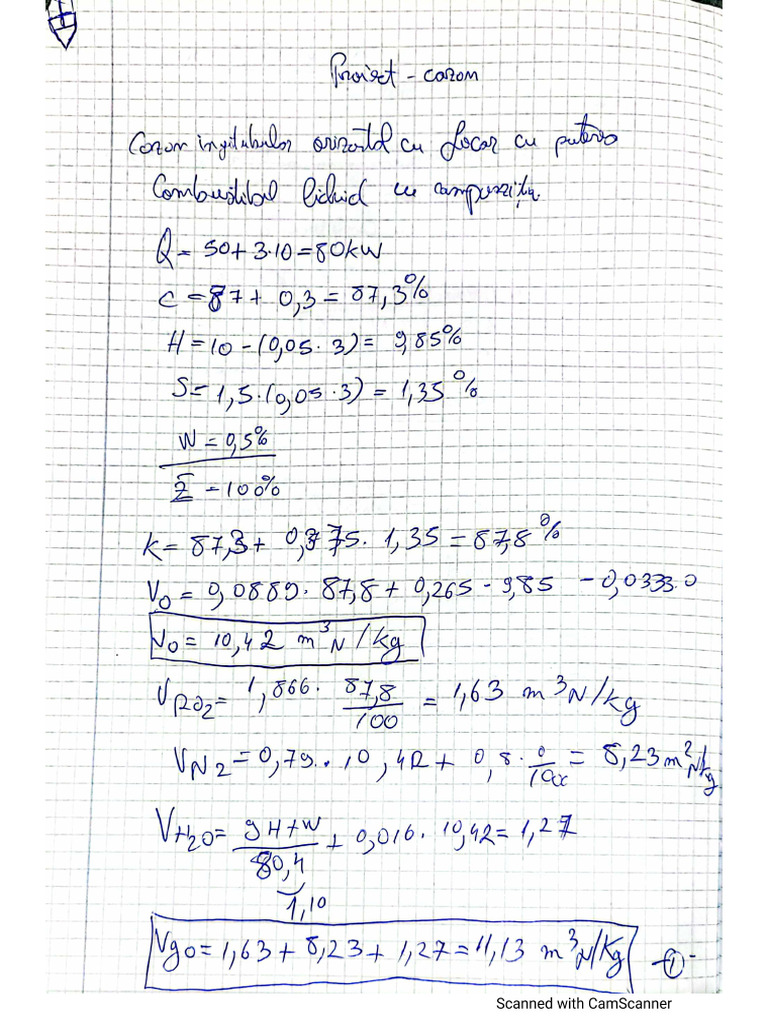 Proiect - cazan
Cazan ingitubular orizontal cu focar cu
Combustibil lichid cu
Q = 50 + 3·10 = 80 kW
C = 87 + 0,3 = 87,3%
H = 10 - (0,05 · 3) = 9,85%
S = 1,5·(0,05·3) = 1,35%
W = 0,5%
Σ = 100%
K = 87,3 + 0,375 · 1,35 = 87,8%
V₀ = 0,0889 · 87,8 + 0,265 - 9,85 - 0,0333.0
V₀ = 10,42 m³N/kg
V_RO₂ = 1,866 · 87,8/100 = 1,63 m³N/kg
V_N2 = 0,79 · 10,42 + 0,8 · 0/100 = 8,23 m²N/kg
V_H₂O = 9H+W/80,4 + 0,016 · 10,42 = 1,27
1,10
Vgo = 1,63 + 8,23 + 1,27 = 11,13 m³N/Kg -①-
Scanned with CamScanner